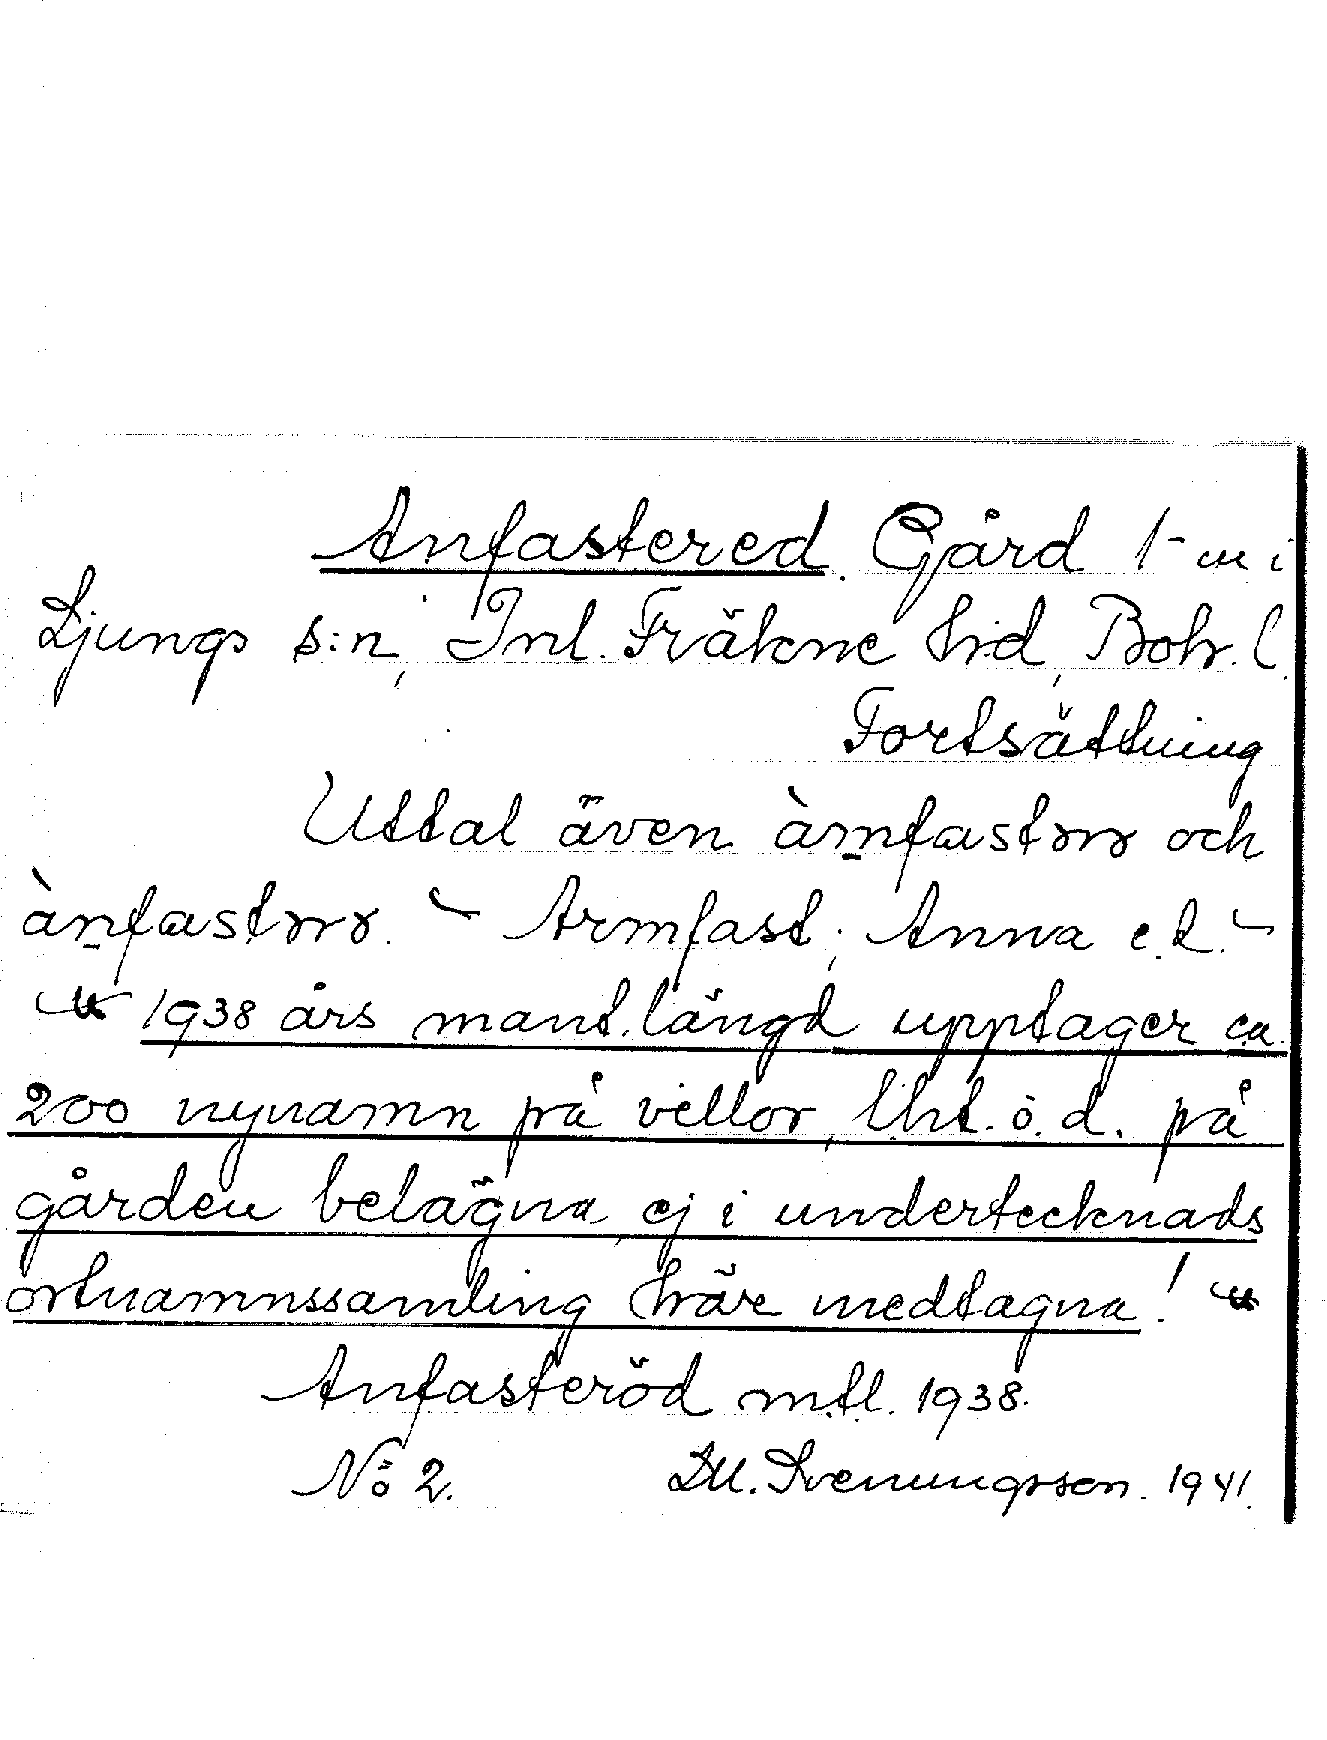 Anfastered. Gård 1 m i
Ljungs s:n, Inl. Fräkne hd, Boh. l.
Fortsättning
Uttal även àmfastrr och
ànfastrr. – Armfast; Anna e.d. –
1938 års mant.längd upptager ca.
200 nynamn på villor, lht. o. d. på
gården belägna, ej i undertecknads
ortnamnssamling häre medtagna!
Anfasteröd mtl. 1938.
No 2. D.M. Svenungsson. 1941.